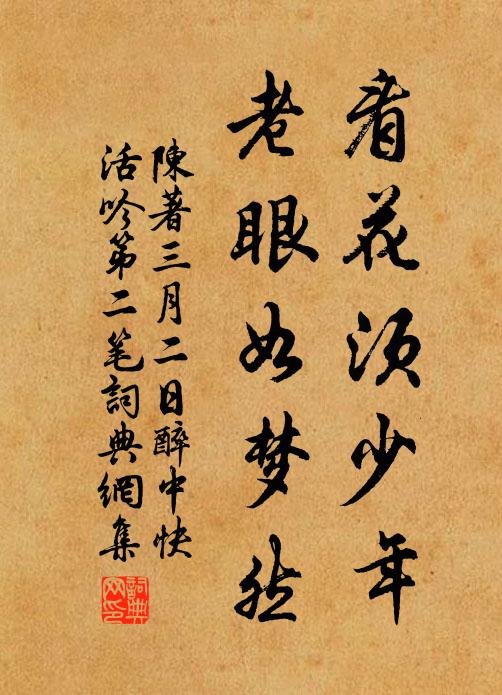 看花须少年
老眼如梦然
陳著三月二日醉中快
活吟第二笔詞典網集
詞典网印